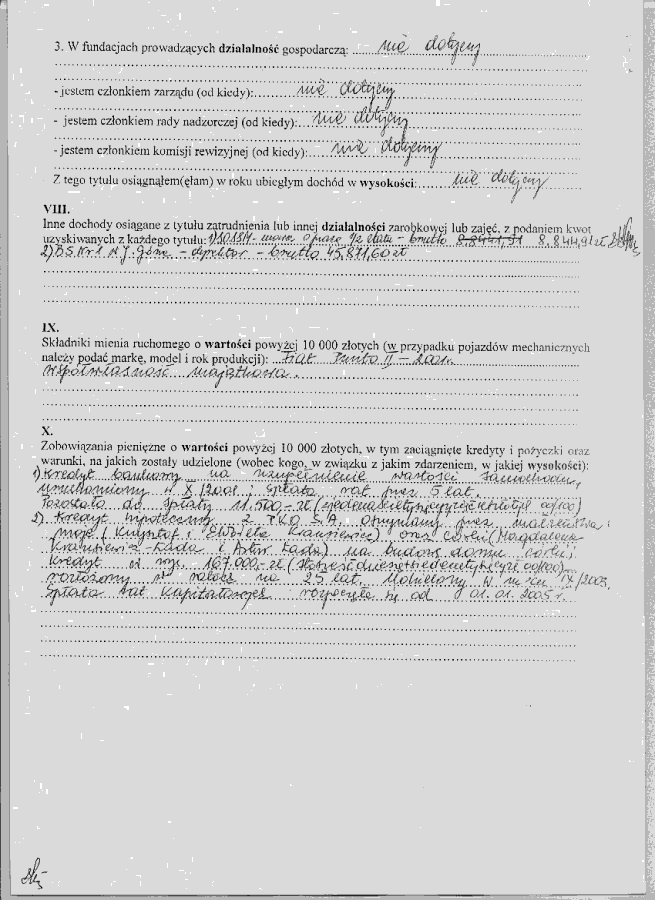 3. W fundacjach prowadzących działalność gospodarczą: nie dotyczy
- jestem członkiem zarządu (od kiedy): nie dotyczy
- jestem członkiem rady nadzorczej (od kiedy): nie dotyczy
- jestem członkiem komisji rewizyjnej (od kiedy): nie dotyczy
Z tego tytułu osiągnąłem(ęłam) w roku ubiegłym dochód w wysokości: nie dotyczy
VIII.
Inne dochody osiągane z tytułu zatrudnienia lub innej działalności zarobkowej lub zajęć, z podaniem kwot
uzyskiwanych z każdego tytułu: 1) umowa o pracę 1/2 etatu – brutto 8.844,91 zł
2) nr 1 – dyrektor – brutto 45.871,60 zł
IX.
Składniki mienia ruchomego o wartości powyżej 10 000 złotych (w przypadku pojazdów mechanicznych
należy podać markę, model i rok produkcji): Fiat Punto II – 2001r.
współwłasność majątkowa.
X.
Zobowiązania pieniężne o wartości powyżej 10 000 złotych, w tym zaciągnięte kredyty i pożyczki oraz
warunki, na jakich zostały udzielone (wobec kogo, w związku z jakim zdarzeniem, w jakiej wysokości):
1) Kredyt bankowy na uzupełnienie wartości samochodu,
uruchomiony w X/2001 i spłata rat przez 5 lat.
Pozostało do spłaty 11.500,-zł (jedenaście tysięcy pięćset zł
2) Kredyt hipoteczny z PKO S.A. otrzymany przez małżeństwo
moje (Krzysztof i Elżbieta oraz córki (Magdalena
Łada i Artur Łada) na budowę domu córki.
Kredyt w wys. 167.000,-zł (sto sześćdziesiąt siedem tysięcy zł
rozłożony w ratach na 25 lat. Udzielony w m-cu IX/2003.
Spłata rat kapitałowych rozpoczęła się od 01.01.2005 r.